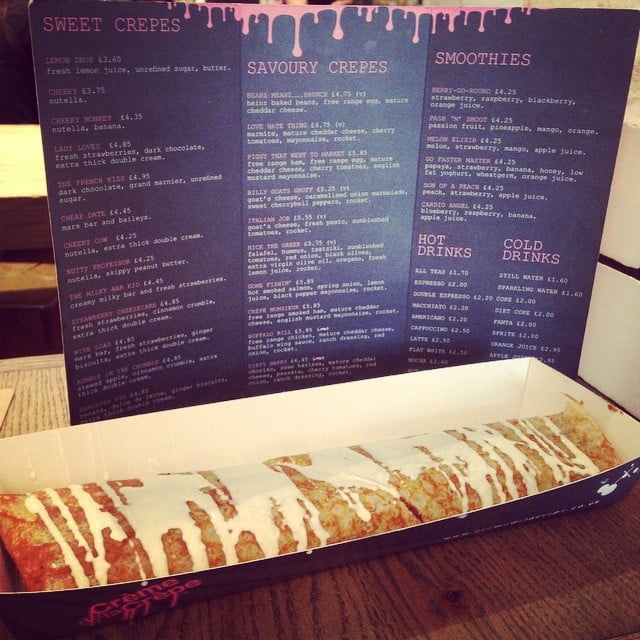 SWEET CREPES
LEMON DROP £3.60
fresh lemon juice, unrefined sugar, butter.
CHEEKY £3.75
nutella.
CHEEKY MONKEY £4.35
nutella, banana.
LADY LOVES £4.85
fresh strawberries, dark chocolate,
extra thick double cream.
THE FRENCH KISS £4.95
dark chocolate, grand marnier, unrefined
sugar.
CHEAP DATE £4.45
mars bar and baileys.
CHEEKY COW £4.25
nutella, extra thick double cream.
NUTTY PROFESSOR £4.25
nutella, skippy peanut butter.
THE MILKY BAR KID £4.45
creamy milky bar and fresh strawberries.
STRAWBERRY CHEESECAKE £4.85
fresh strawberries, cinnamon crumble,
extra thick double cream.
WIDE LOAD £4.85
mars bar, fresh strawberries, ginger
biscuits, extra thick double cream.
SAVOURY CREPES
BEANZ MEANZ...BRUNCH £4.75 (v)
heinz baked beans, free range egg, mature
cheddar cheese.
LOVE HATE THING £4.75 (v)
marmite, mature cheddar cheese, cherry
tomatoes, mayonnaise, rocket.
PIGGY THAT WENT TO MARKET £5.85
free range ham, free range egg, mature
cheddar cheese, cherry tomatoes, english
mustard mayonnaise.
BILLY GOATS GRUFF £5.25 (v)
goat's cheese, caramelised onion marmalade,
sweet cherrybell peppers, rocket.
ITALIAN JOB £5.55 (v)
goat's cheese, fresh pesto, sunblushed
tomatoes, rocket.
NICK THE GREEK £5.75 (v)
falafel, hummus, tzatziki, sunblushed
tomatoes, red onion, black olives,
extra virgin olive oil, oregano, fresh
lemon juice, rocket.
GONE FISHIN' £5.85
juice, black pepper mayonnaise, rocket.
CREPE MONSIEUR £5.85
free range smoked ham, mature cheddar
cheese, english mustard mayonnaise, rocket.
BUFFALO BILL £5.85
free range chicken, mature cheddar cheese,
buffalo wing sauce, ranch dressing, red
onion, rocket.
DIRTY HARRY £6.45
chorizo, rose harissa, mature cheddar
cheese, passata, cherry tomatoes, red
onion, ranch dressing, rocket.
SMOOTHIES
BERRY-GO-ROUND £4.25
strawberry, raspberry, blackberry,
orange juice.
PASH 'N' SHOOT £4.25
passion fruit, pineapple, mango, orange.
MELON ELIXIR £4.25
melon, strawberry, mango, apple juice.
GO FASTER MASTER £4.25
papaya, strawberry, banana, honey, low
fat yoghurt, wheatgerm, orange juice.
SON OF A PEACH £4.25
peach, strawberry, apple juice.
CARDIO ANGEL £4.25
blueberry, raspberry, banana,
apple juice.
HOT
DRINKS
ALL TEAS £1.70
ESPRESSO £2.00
DOUBLE ESPRESSO £2.20
MACCHIATO £2.20
AMERICANO £2.20
CAPPUCCINO £2.50
LATTE £2.50
FLAT WHITE £2.50
MOCHA £2.60
COLD
DRINKS
STILL WATER £1.60
SPARKLING WATER £1.60
COKE £2.00
DIET COKE £2.00
FANTA £2.00
SPRITE £2.00
ORANGE JUICE £2.95
APPLE
Crème
de la
Crêpe